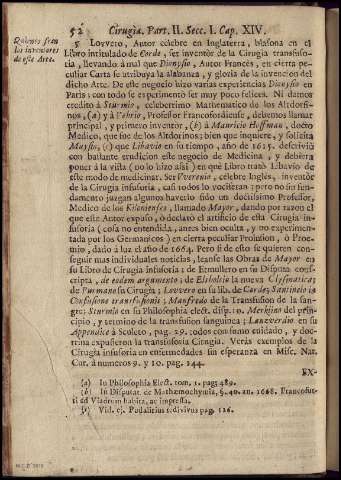 52 Cirugia. Part. II. Secc. I. Cap. XIV.
Quienes sean
los inventores
de este Arte.
5 Louvero, Autor celebre en Inglaterra, blasona en el
Libro intitulado de Corde, ser inventor de la Cirugia transfuso-
ria, llevando à mal que Dionysio, Autor Francès, en cierta pe-
culiar Carta se atribuya la alabanza, y gloria de la invencion del
dicho Arte. De este negocio hizo varias experiencias Dionysio en
Paris: con todo el experimento ser muy poco felices. Ni damos
credito à Sturmio, celeberrimo Mathematico de los Altdorfi-
nos, (a) y à Vehrio, Professor Francofordiense, debemos llamar
principal, y primero inventor, (b) à Mauricio Hoffman, docto
Medico, que fue de los Altdorinos; bien que inquiere, y solicita
Mussio, (c) que Libavio en su tiempo, año de 1615. descriviò
con bastante erudicion este negocio de Medicina, y debiera
poner à la vista (no lo hizo assi) en que Libro tratò Libavio de
este modo de medicinar. Ser Vverenio, celebre Inglès, inventòr
de la Cirugia infusoria, casi todos lo vociferan; pero no sin fun-
damento juzgan algunos haverlo sido un doctissimo Professor,
Medico de los Kilonienses, llamado Mayor, dando por razon el
que este Autor expuso, ò declarò el artificio de esta Cirugia in-
fusoria (cosa no entendida, antes bien oculta, y no experimen-
tada por los Germanicos) en cierta peculiar Profusion, ò Proe-
mio, dado à luz el año de 1664. Pero si de esto se quieren con-
seguir mas individuales noticias, leanse las Obras de Mayor en
su Libro de Cirugia infusoria; de Etmullero en su Disputa cons-
cripta, de eodem argumento; de Elsholsio la nueva Clysmatica; de
Purmano su Cirugia; Louvero en su lib. de Corde; Santinelo in
Confusione transfusionis; Manfredo de la Transfusion de la san-
gre; Sturmio en su Philosophia elect. disp. 10. Merkjino del prin-
cipio, y termino de la transfusion sanguinea; Lanzverdio en su
Appendice à Sculeto, pag. 29. todos con sumo cuidado, y doc-
trina expusieron la transfusoria Cirugia. Veràs exemplos de la
Cirugia infusoria en enfermedades sin esperanza en Misc. Nat.
Cur. à numeros 9. y 10. pag. 244.
EX-
(a) In Philosophia Elect. tom. 1. pag. 489.
(b) In Disputat. de Mathæmochymia, §. 40. an. 1668. Francofur-
ti ad Viadrum habita, ac impressa.
(c) Vid. ej. Podalirius redivivus pag. 126.